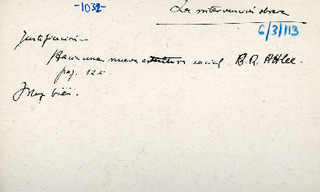 -1032-
La intervención
6/3/113
Justificación
Hacia una nueva estructura social. B.R. Attlee.
pag. 122
Muy bien.